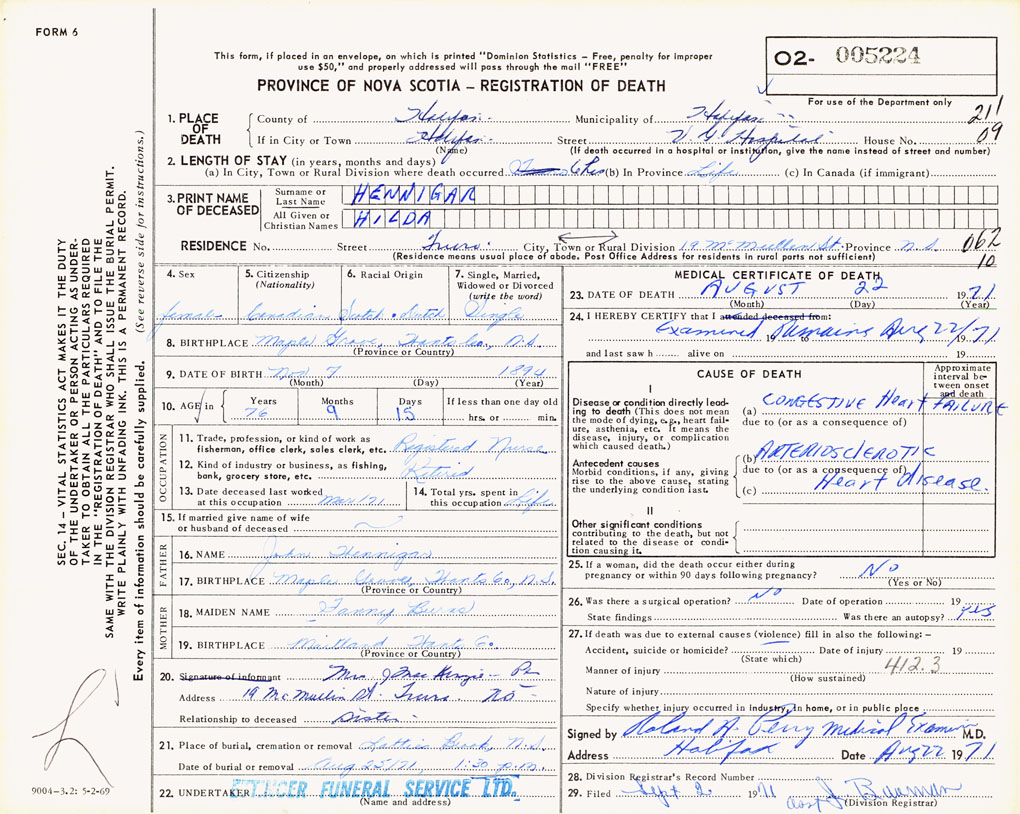 FORM 6
This form, if placed in an envelope, on which is printed "Dominion Statistics – Free, penalty for improper
use $50," and properly addressed will pass through the mail "FREE"
PROVINCE OF NOVA SCOTIA – REGISTRATION OF DEATH
O2- 005224
For use of the Department only
211
09
1. PLACE OF DEATH
County of Halifax Municipality of Halifax
If in City or Town Halifax Street V. G. Hospital House No.
(Name) (If death occurred in a hospital or institution, give the name instead of street and number)
2. LENGTH OF STAY (in years, months and days)
(a) In City, Town or Rural Division where death occurred 6 hrs (b) In Province Life (c) In Canada (if immigrant)
3. PRINT NAME OF DECEASED
Surname or Last Name HENNIGAR
All Given or Christian Names HILDA
RESIDENCE No. Street Truro City, Town or Rural Division 19 McMullen St. Province N.S.
(Residence means usual place of abode. Post Office Address for residents in rural parts not sufficient)
062
10
4. Sex
female
5. Citizenship
(Nationality)
Canadian
6. Racial Origin
Scotch - Dutch
7. Single, Married,
Widowed or Divorced
(write the word)
Single
8. BIRTHPLACE Maple Grove, Hants Co., N.S.
(Province or Country)
9. DATE OF BIRTH Nov 7 1894
(Month) (Day) (Year)
10. AGE in Years Months Days If less than one day old
76 9 15 hrs. or min.
OCCUPATION
11. Trade, profession, or kind of work as
fisherman, office clerk, sales clerk, etc. Registered Nurse
12. Kind of industry or business, as fishing,
bank, grocery store, etc. Retired
13. Date deceased last worked
at this occupation Mar/71
14. Total yrs. spent in
this occupation Life
15. If married give name of wife
or husband of deceased
FATHER
16. NAME John Hennigar
17. BIRTHPLACE Maple Grove, Hants Co., N.S.
(Province or Country)
MOTHER
18. MAIDEN NAME Fanny Burns
19. BIRTHPLACE Maitland Hants Co.
(Province or Country)
20. Signature of informant Mrs. J MacKenzie
Address 19 McMullin St. Truro NS
Relationship to deceased Sister
21. Place of burial, cremation or removal Lattie's Brook, N.S.
Date of burial or removal Aug 25/71 1:30 p.m.
22. UNDERTAKER FUNERAL SERVICE LTD.
(Name and address)
MEDICAL CERTIFICATE OF DEATH
23. DATE OF DEATH AUGUST 22 1971
(Month) (Day) (Year)
24. I HEREBY CERTIFY that I attended deceased from:
Examined Remains Aug 22/71
19 to 19
and last saw h alive on 19
CAUSE OF DEATH
Approximate
interval be-
tween onset
and death
I
Disease or condition directly lead-
ing to death (This does not mean
the mode of dying, e.g., heart fail-
ure, asthenia, etc. It means the
disease, injury, or complication
which caused death.)
(a) CONGESTIVE Heart FAILURE
due to (or as a consequence of)
Antecedent causes
Morbid conditions, if any, giving
rise to the above cause, stating
the underlying condition last.
(b) ARTERIOSCLEROTIC
due to (or as a consequence of)
(c) Heart Disease.
II
Other significant conditions
contributing to the death, but not
related to the disease or condi-
tion causing it.
25. If a woman, did the death occur either during
pregnancy or within 90 days following pregnancy? No
(Yes or No)
26. Was there a surgical operation? No Date of operation 19
State findings Was there an autopsy? yes
27. If death was due to external causes (violence) fill in also the following: –
Accident, suicide or homicide? Date of injury 19
(State which)
412.3
Manner of injury
(How sustained)
Nature of injury
Specify whether injury occurred in industry, in home, or in public place
Signed by Roland A. Perry Medical Examiner M.D.
Address Halifax Date Aug 22 1971
28. Division Registrar's Record Number
29. Filed Sept 2 1971
(Division Registrar)
SEC. 14 – VITAL STATISTICS ACT MAKES IT THE DUTY
OF THE UNDERTAKER OR PERSON ACTING AS UNDER-
TAKER TO OBTAIN ALL THE PARTICULARS REQUIRED
IN THE "REGISTRATION OF DEATH" AND TO FILE THE
SAME WITH THE DIVISION REGISTRAR WHO SHALL ISSUE THE BURIAL PERMIT.
WRITE PLAINLY WITH UNFADING INK. THIS IS A PERMANENT RECORD.
Every item of information should be carefully supplied. (See reverse side for instructions.)
9004-3.2: 5-2-69